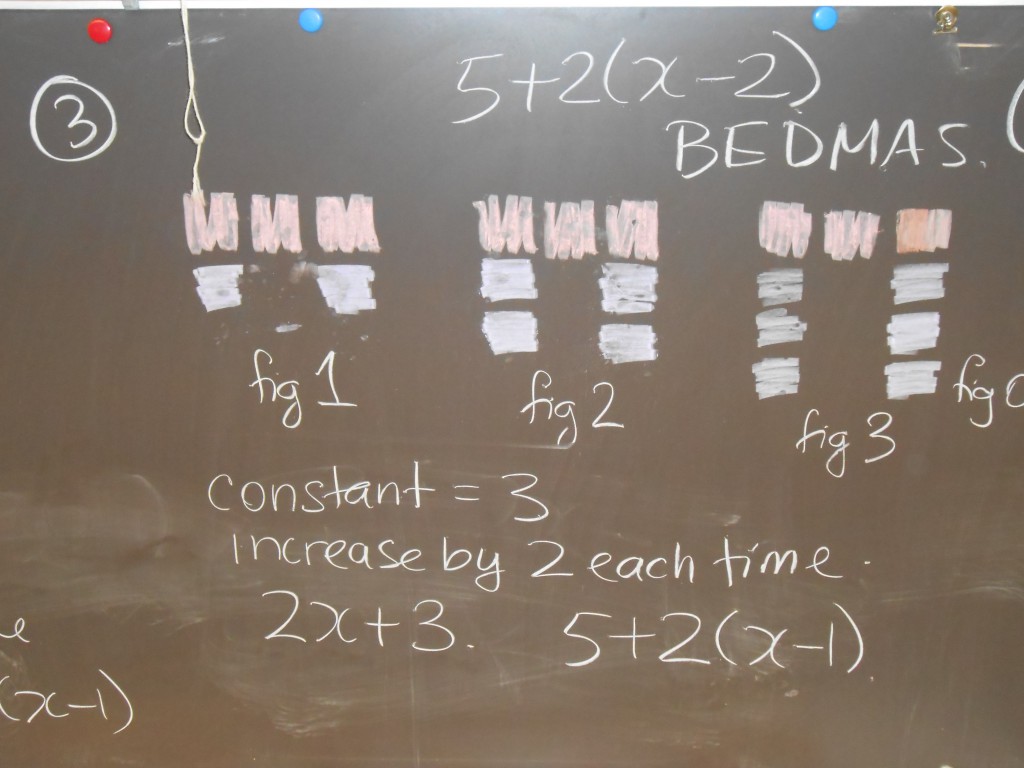 3
5+2(x-2)
BEDMAS.
fig 1
fig 2
fig 3
fig
constant = 3
increase by 2 each time.
2x+3.
5+2(x-1)
(x-1)